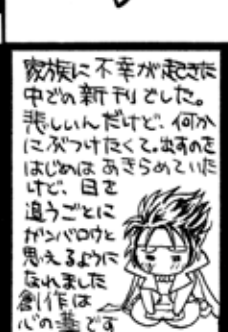 家族に不幸が起きた
中での新刊でした。
悲しいんだけど、何か
にぶつけたくて。出すのを
はじめはあきらめていた
けど、日を
追うごとに
ガンバロウと
思えるように
なれました
創作は
心の薬です